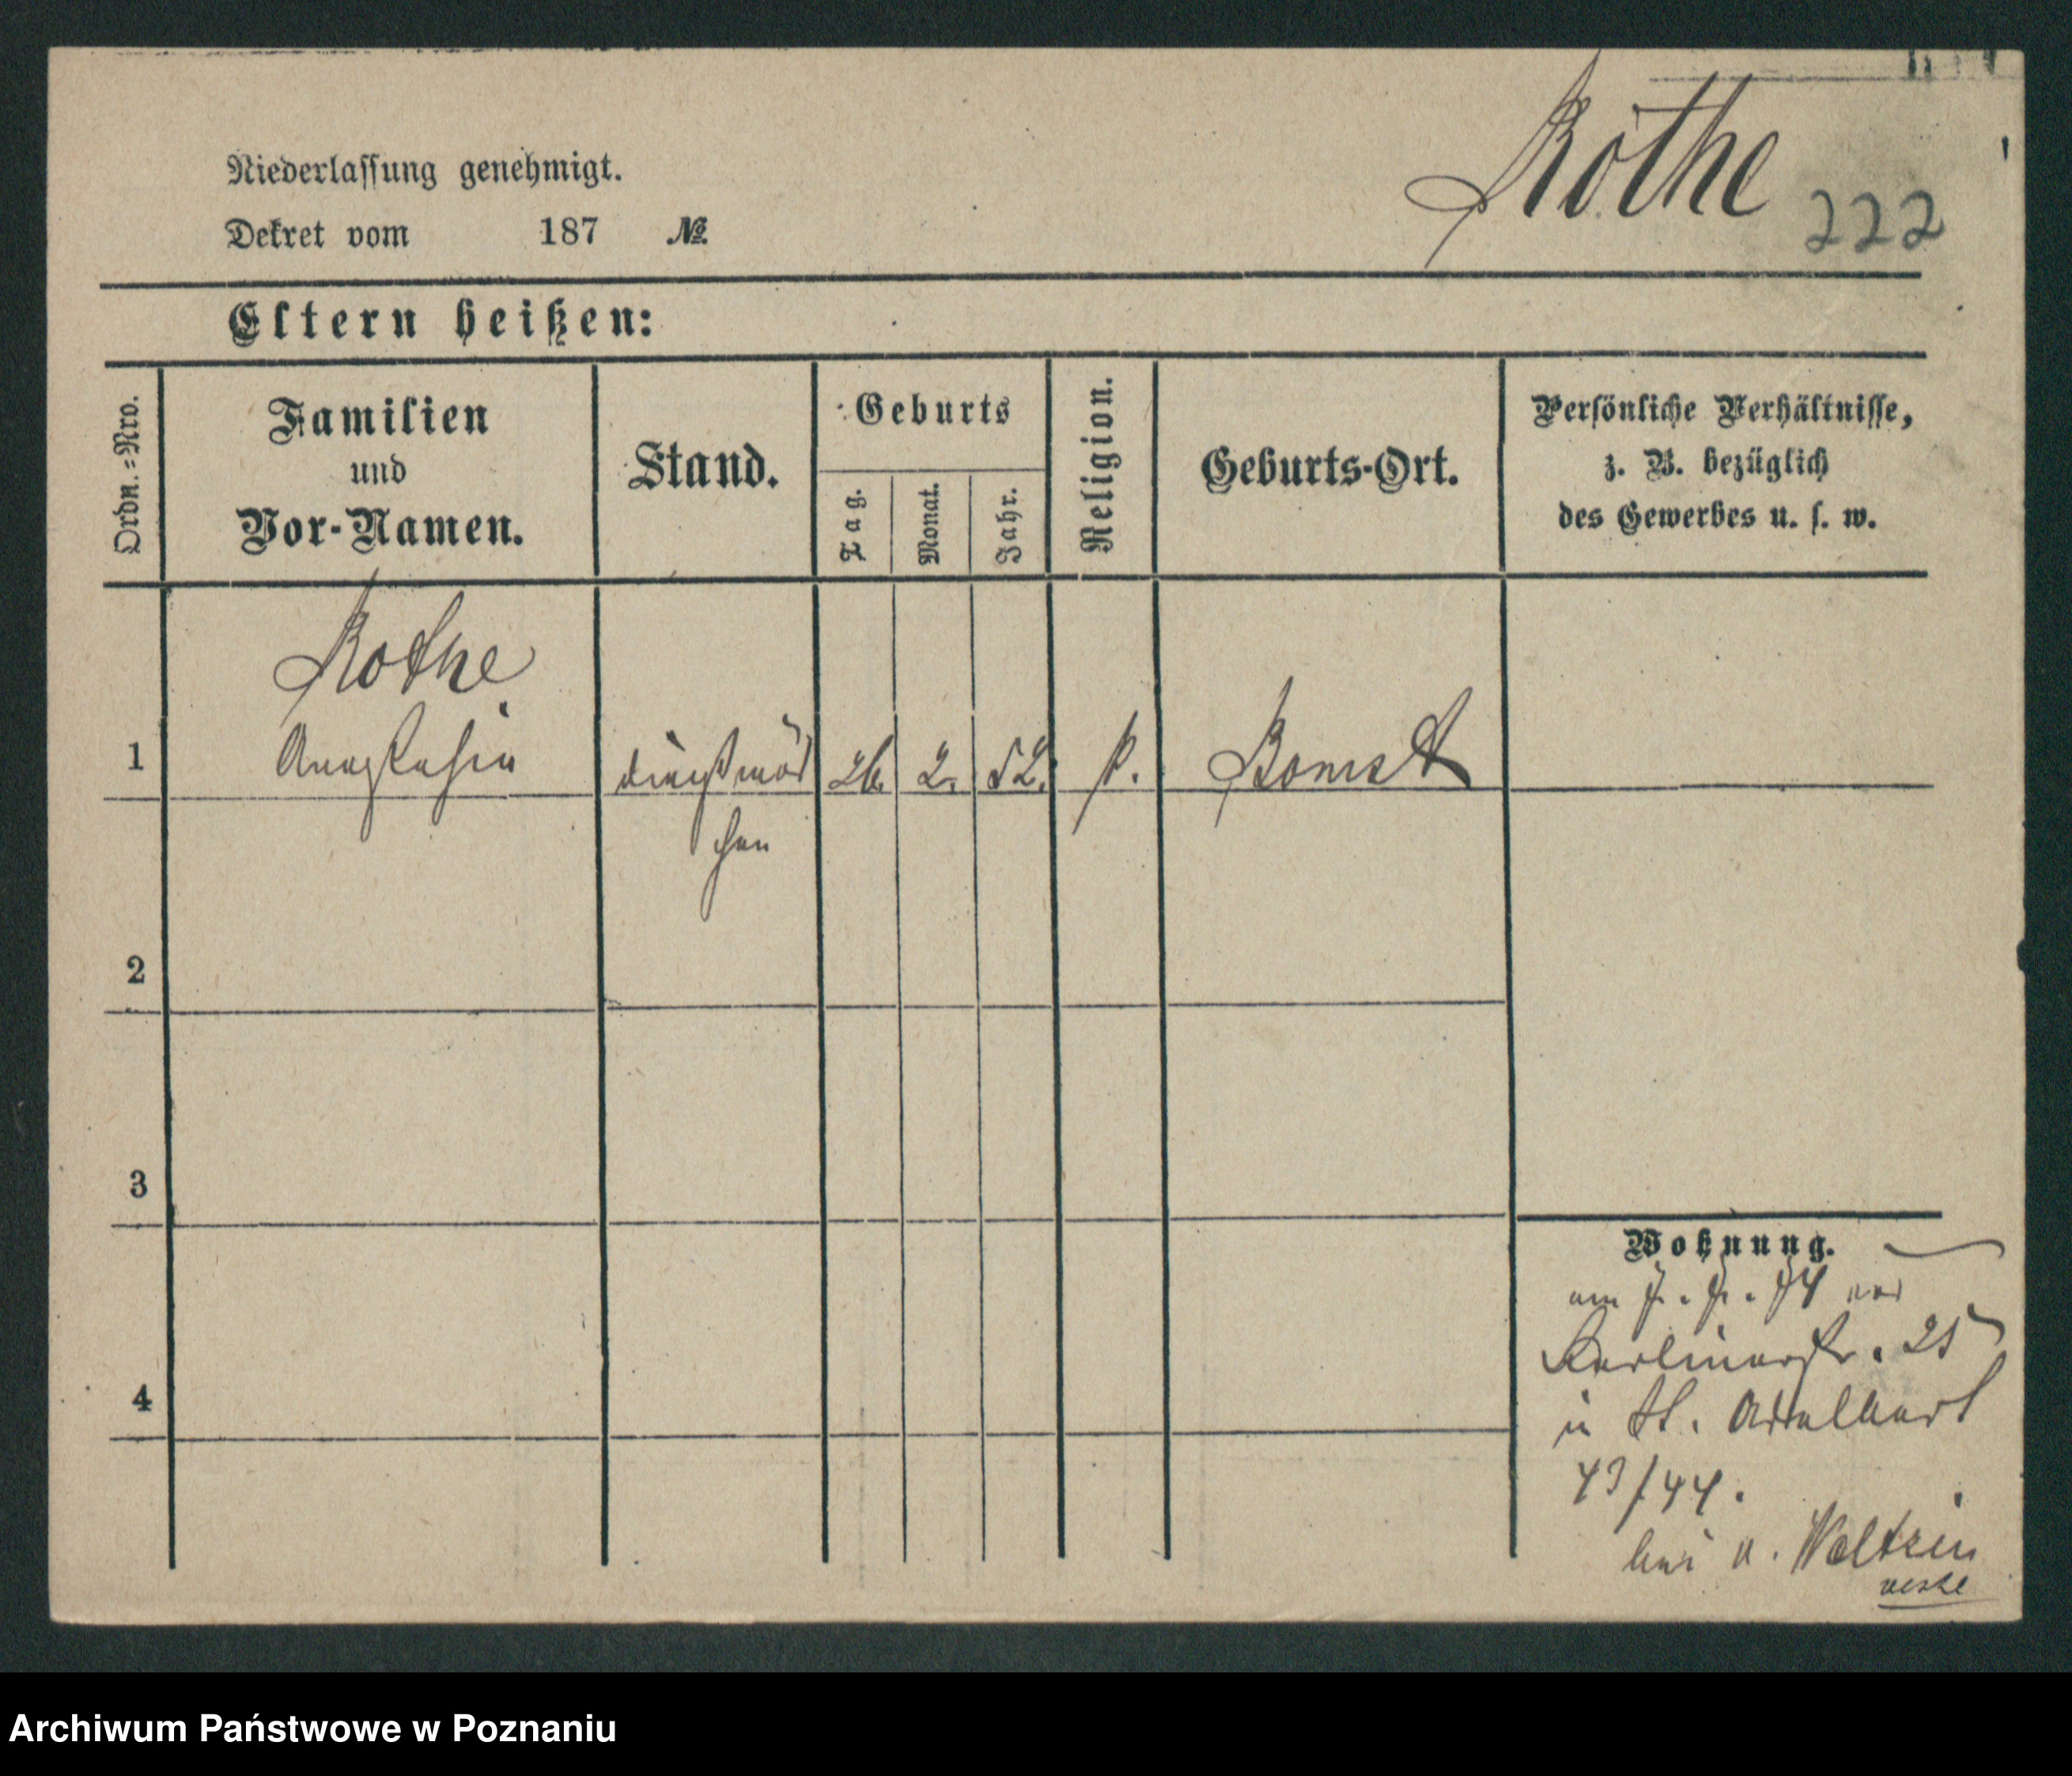 Rothe
222
Niederlassung genehmigt.
Dekret vom 187 №
Eltern heißen:
Ordn.=Nro.
Familien
und
Vor-Namen.
Stand.
Geburts
Tag.
Monat.
Jahr.
Religion.
Geburts-Ort.
Persönliche Verhältnisse,
z. B. bezüglich
des Gewerbes u. s. w.
Rothe
1 Anastasia dienstmäd 26. 2. 52. k. Bomst
chen
2
3
4
Wohnung.
am 74
Berlinerstr. 25
St. Adalbert
43/44.
bei v.
Archiwum Państwowe w Poznaniu